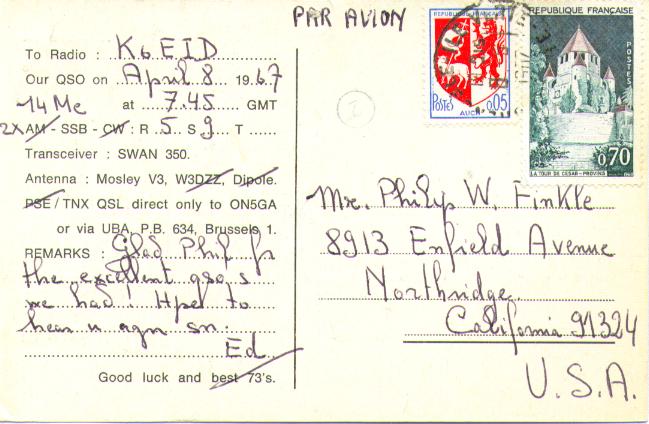 PAR AVION
To Radio : K6EID
Our QSO on April 8 1967
14 Mc at 7.45 GMT
2X AM - SSB - CW : R 5 S 9 T
Transceiver : SWAN 350.
Antenna : Mosley V3, W3DZZ, Dipole.
PSE / TNX QSL direct only to ON5GA
or via UBA, P.B. 634, Brussels 1.
REMARKS : Glad Phil fr
the excellent qso,s
we had! Hpe to
hear u agn sn.
Ed
Good luck and best 73's.
REPUBLIQUE FRANÇAISE
POSTES 0,05
AUCH
REPUBLIQUE FRANÇAISE
POSTES
0,70
LA TOUR DE CESAR - PROVINS
Mr. Philip W. Finkle
8913 Enfield Avenue
Northridge.
California 91324
U.S.A.